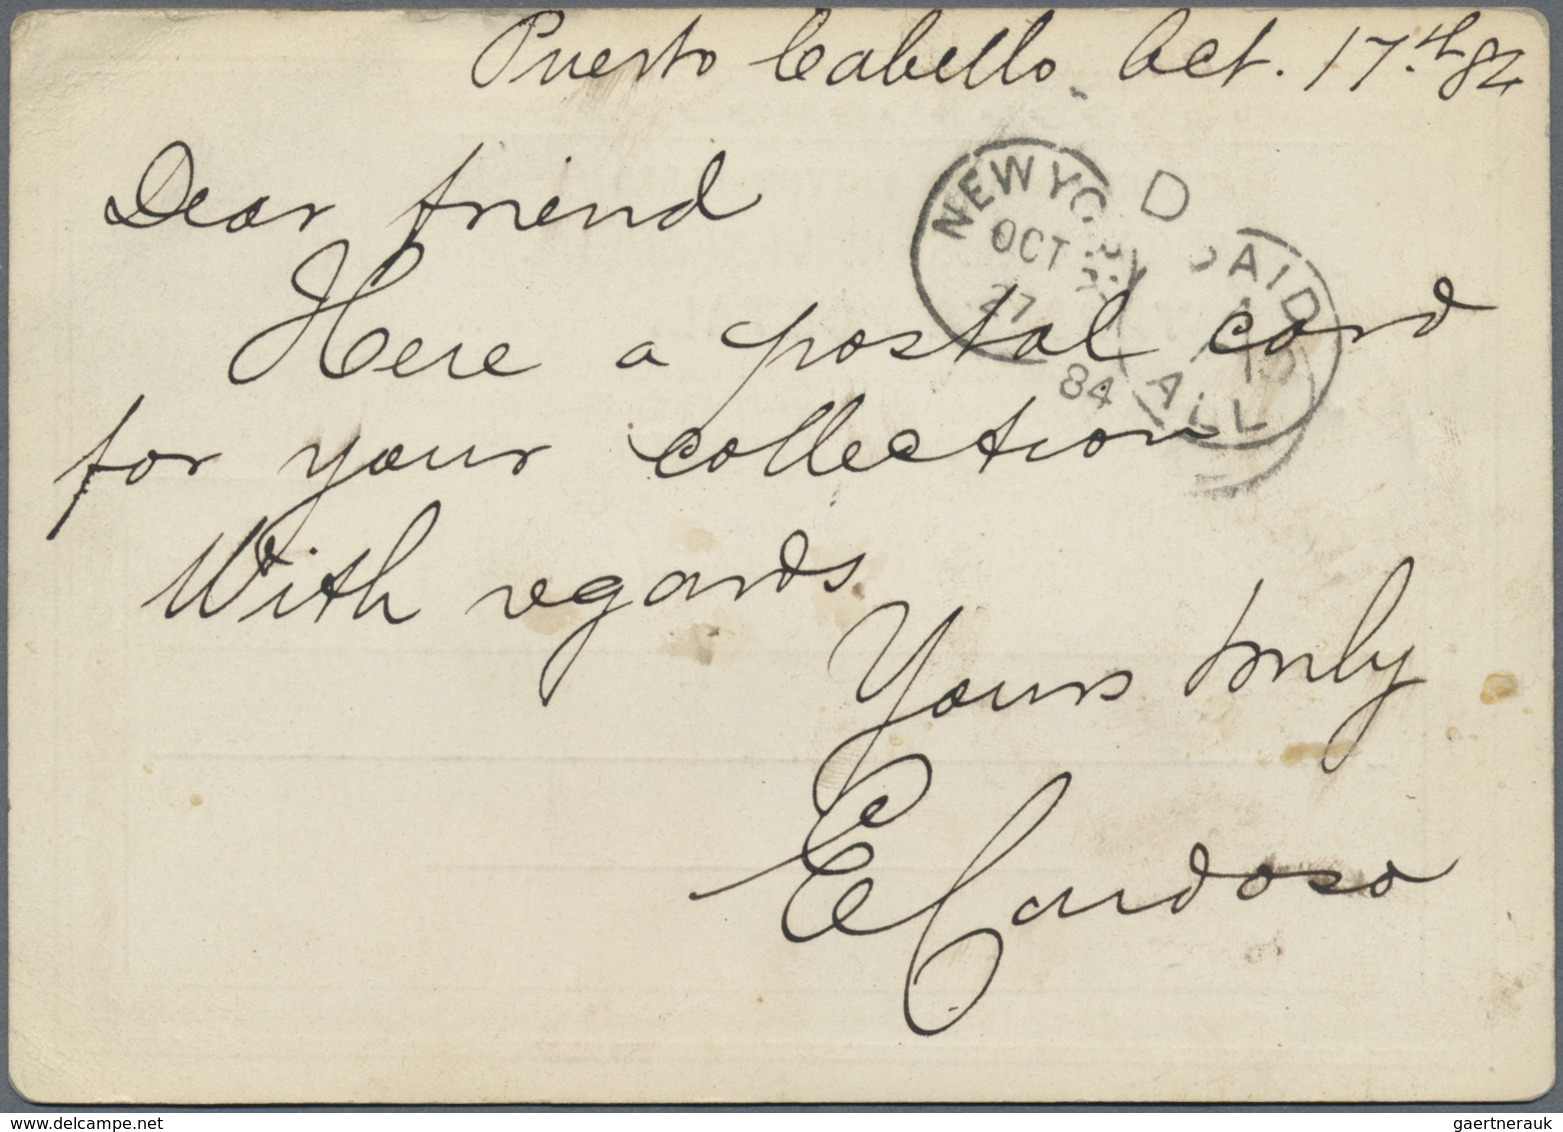 Puerto Cabello. Oct. 17th 84
Dear friend
Here a postal card
for your collection
With regards.
Yours truly
E Cardoso
NEW YORK
D
OCT
27
84
PAID
ALL
gaertnerauk